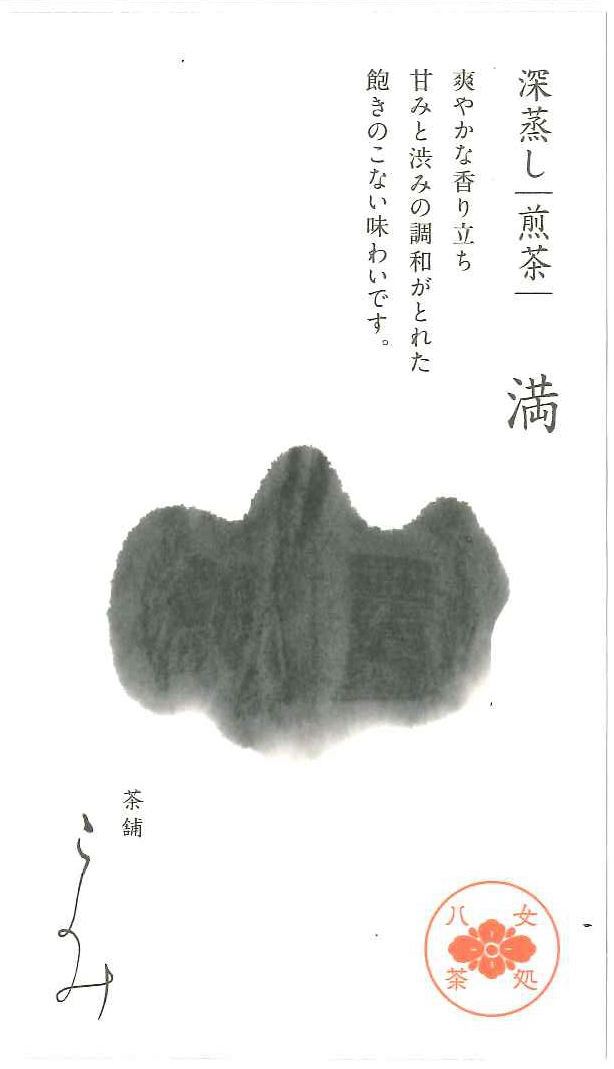 深蒸し｜煎茶｜ 満
爽やかな香り立ち
甘みと渋みの調和がとれた
飽きのこない味わいです。
茶舗
らみ
八女
茶処